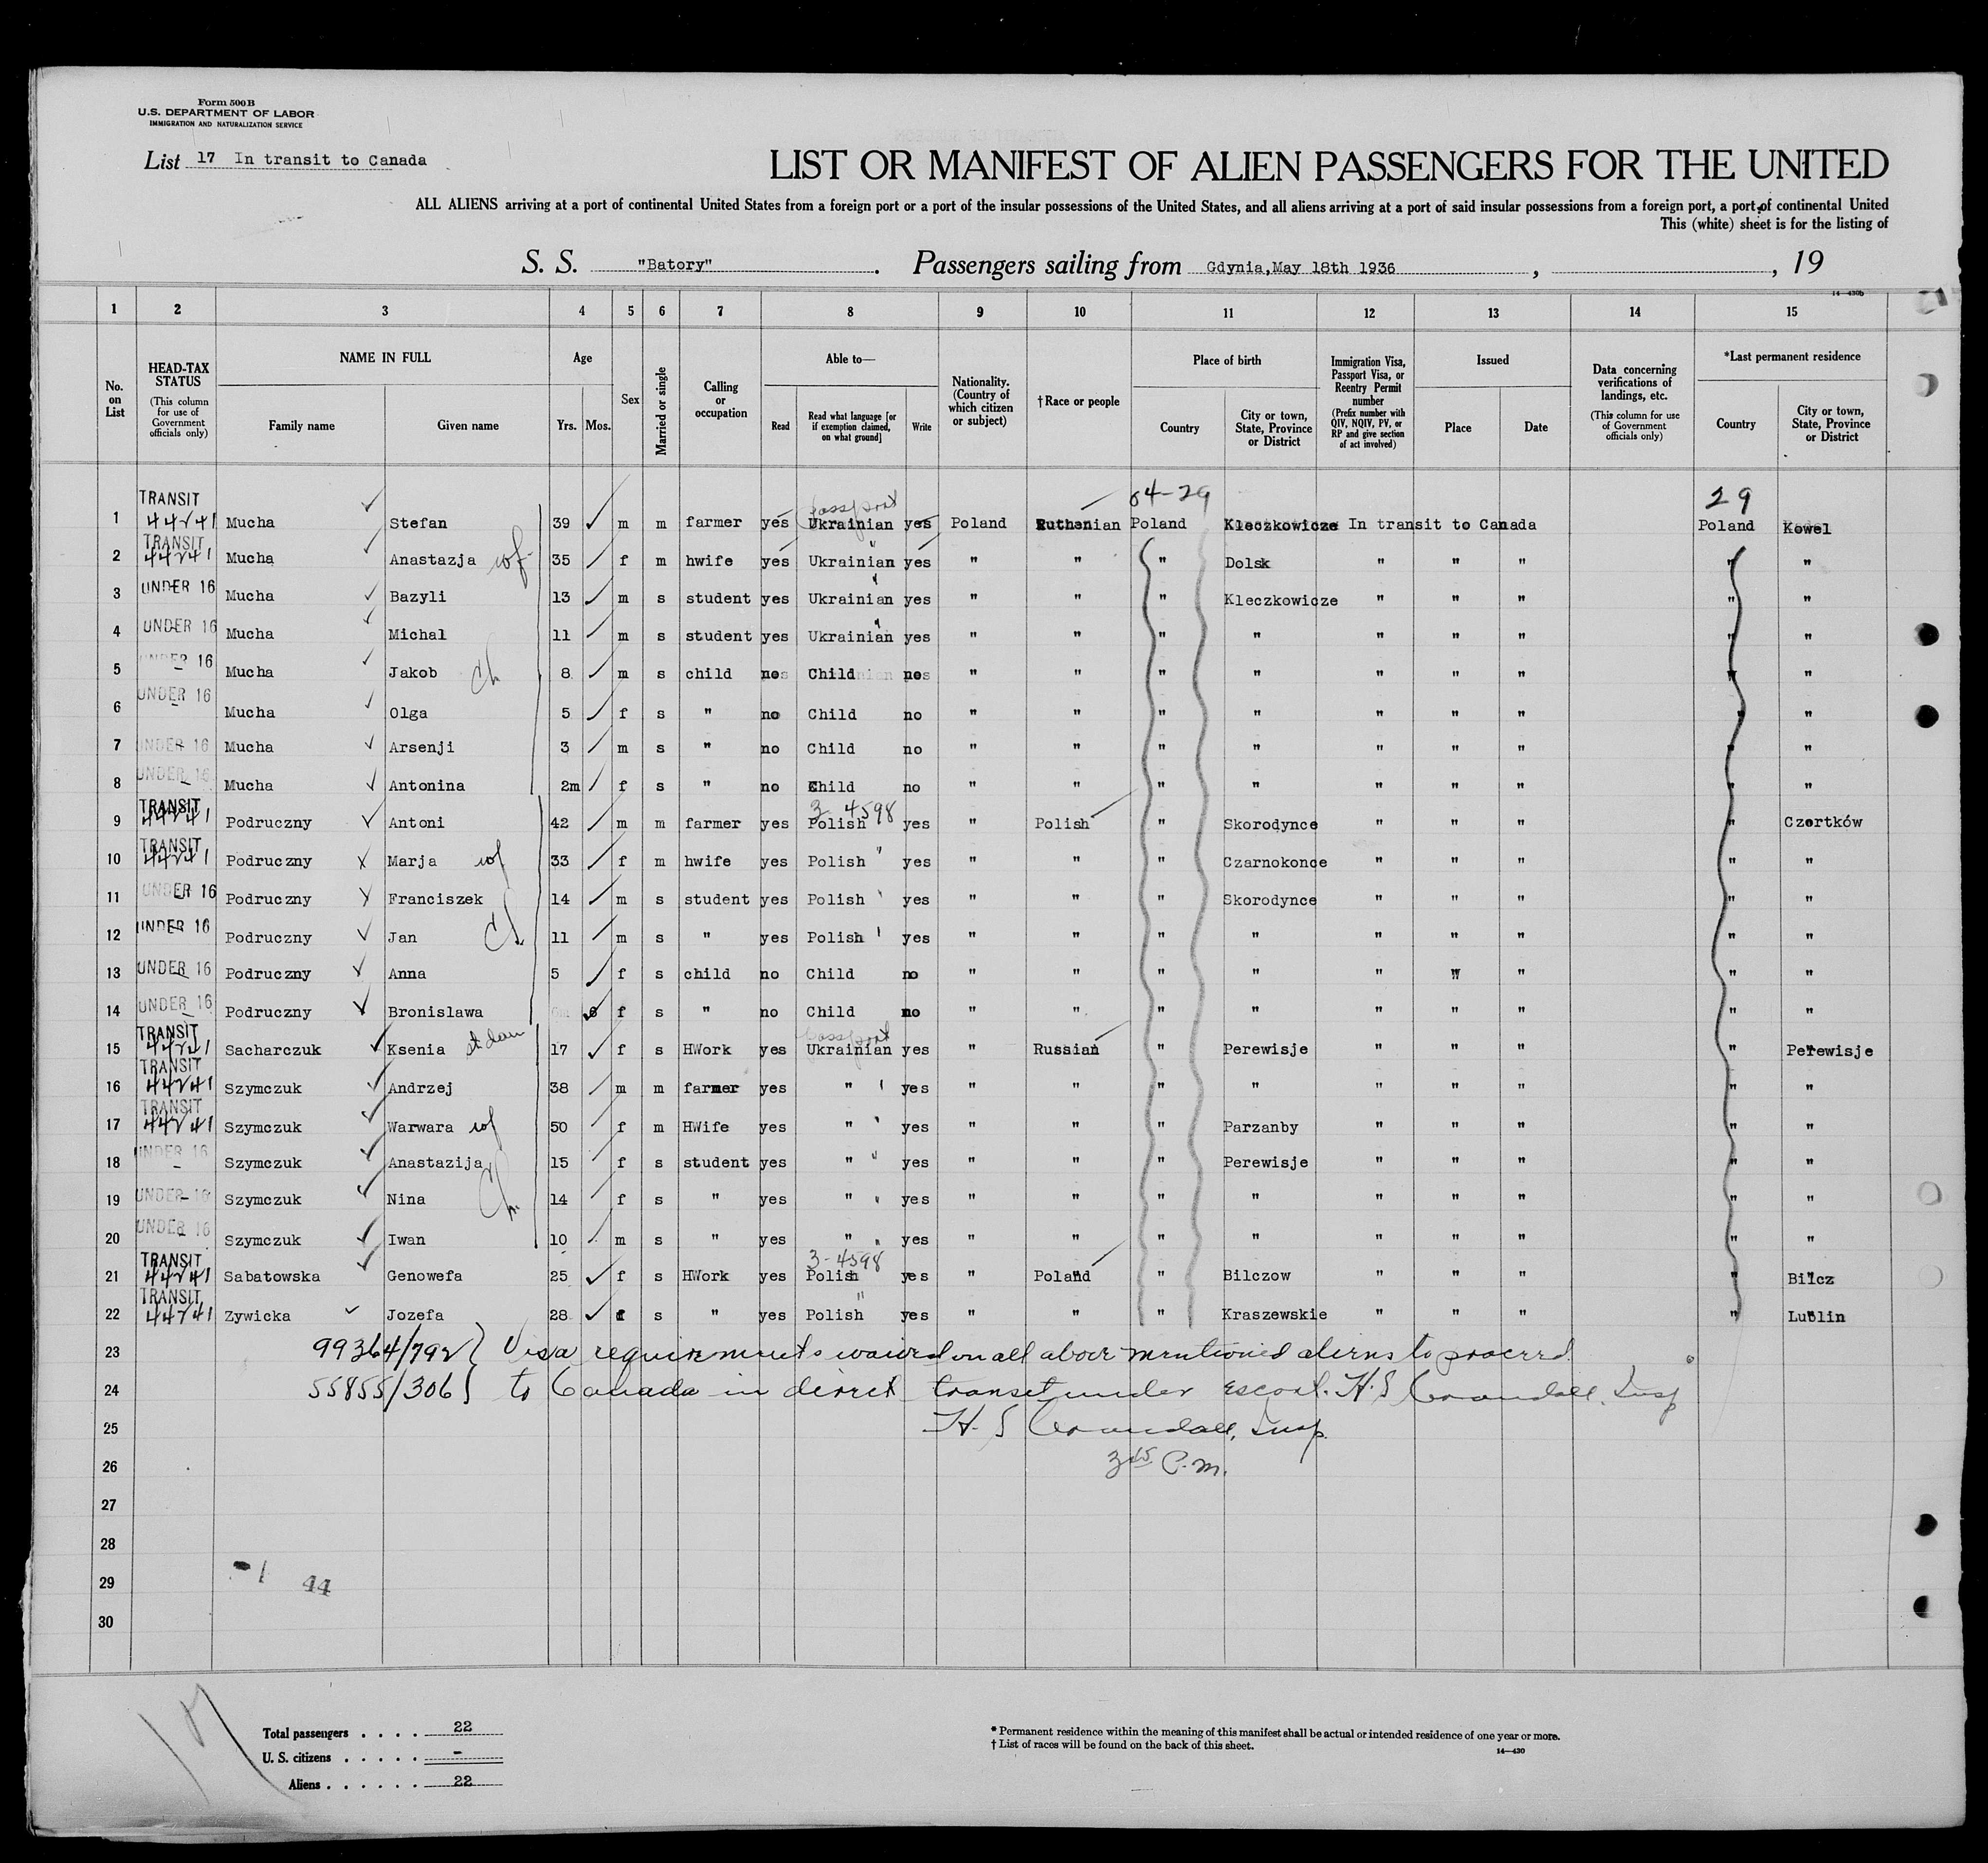 Form 500 B
U.S. DEPARTMENT OF LABOR
IMMIGRATION AND NATURALIZATION SERVICE
List 17 In transit to Canada
LIST OR MANIFEST OF ALIEN PASSENGERS FOR THE UNITED
ALL ALIENS arriving at a port of continental United States from a foreign port or a port of the insular possessions of the United States, and all aliens arriving at a port of said insular possessions from a foreign port, a port of continental United
This (white) sheet is for the listing of
S. S. "Batory". Passengers sailing from Gdynia, May 18th 1936, , 19
14—430b
1 2 3 4 5 6 7 8 9 10 11 12 13 14 15
No. on List
HEAD-TAX STATUS (This column for use of Government officials only)
NAME IN FULL Family name Given name
Age Yrs. Mos.
Sex
Married or single
Calling or occupation
Able to— Read Read what language [or if exemption claimed, on what ground] Write
Nationality. (Country of which citizen or subject)
†Race or people
Place of birth Country City or town, State, Province or District
Immigration Visa, Passport Visa, or Reentry Permit number (Prefix number with QIV, NQIV, PV, or RP and give section of act involved)
Issued Place Date
Data concerning verifications of landings, etc. (This column for use of Government officials only)
*Last permanent residence Country City or town, State, Province or District
passport 64-29 29
1 TRANSIT 44241 Mucha Stefan 39 m m farmer yes Ukrainian yes Poland Ruthenian Poland Kleczkowicze In transit to Canada Poland Kowel
2 TRANSIT 44241 Mucha Anastazja wf 35 f m hwife yes Ukrainian yes " " " Dolsk " " " " "
3 UNDER 16 Mucha Bazyli 13 m s student yes Ukrainian yes " " " Kleczkowicze " " " " "
4 UNDER 16 Mucha Michal 11 m s student yes Ukrainian yes " " " " " " " " "
5 UNDER 16 Mucha Jakob Ch 8 m s child no Child no " " " " " " " " "
6 UNDER 16 Mucha Olga 5 f s " no Child no " " " " " " " " "
7 UNDER 16 Mucha Arsenji 3 m s " no Child no " " " " " " " " "
8 UNDER 16 Mucha Antonina 2m f s " no Child no " " " " " " " " "
3-4598
9 TRANSIT 44241 Podruczny Antoni 42 m m farmer yes Polish yes " Polish " Skorodynce " " " " Czortków
10 TRANSIT 44241 Podruczny Marja wf 33 f m hwife yes Polish " yes " " " Czarnokonce " " " " "
11 UNDER 16 Podruczny Franciszek 14 m s student yes Polish yes " " " Skorodynce " " " " "
12 UNDER 16 Podruczny Jan Ch 11 m s " yes Polish yes " " " " " " " " "
13 UNDER 16 Podruczny Anna 5 f s child no Child no " " " " " " " " "
14 UNDER 16 Podruczny Bronislawa 6 f s " no Child no " " " " " " " " "
passport
15 TRANSIT 44241 Sacharczuk Ksenia st dau 17 f s HWork yes Ukrainian yes " Russian " Perewisje " " " " Perewisje
16 TRANSIT 44241 Szymczuk Andrzej 38 m m farmer yes " yes " " " " " " " " "
17 TRANSIT 44241 Szymczuk Warwara wf 50 f m HWife yes " yes " " " Parzanby " " " " "
18 UNDER 16 Szymczuk Anastazija 15 f s student yes " yes " " " Perewisje " " " " "
19 UNDER 16 Szymczuk Nina Ch 14 f s " yes " yes " " " " " " " " "
20 UNDER 16 Szymczuk Iwan 10 m s " yes " yes " " " " " " " " "
3-4598
21 TRANSIT 44241 Sabatowska Genowefa 25 f s HWork yes Polish yes " Poland " Bilczow " " " " Bilcz
22 TRANSIT 44241 Zywicka Jozefa 28 f s " yes Polish yes " " " Kraszewskie " " " " Lublin
23 99364/792 } Visa requirements waived on all above mentioned aliens to proceed
24 55855/306 } to Canada in direct transit under escort. H. S Crandall, Insp
25 H. S Crandall, Insp.
26 3 15 P.m.
27
28
29 -1 44
30
Total passengers . . . . 22
U. S. citizens . . . . . -
Aliens . . . . . . 22
* Permanent residence within the meaning of this manifest shall be actual or intended residence of one year or more.
† List of races will be found on the back of this sheet.
14—430